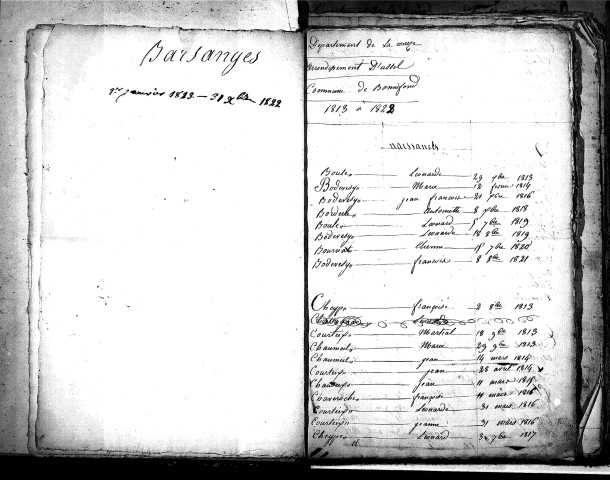 Barsanges
1er janvier 1813 — 31 xbre 1822
Département de La Corrèze
Arrondissement D'ussel
Commune de Bonnefond
1813 à 1822
naissances
Boule Leonarde 29 7bre 1813
Boderesy Marie 12 1814
Boderesy jean francois 21 7bre 1816
Borderie Antoinette 8 7bre 1818
Boule Leonard 5 7bre 1819
Boderesy Leonarde 18 8bre 1819
Bournat Etienne 15 7bre 1820
Boderesy francois 8 8bre 1821
Cheype françoise 2 8bre 1813
Courteix Martial 18 9bre 1813
Chaumeil Marie 29 9bre 1813
Chaumeil jean 14 mars 1814
Courteix jean 28 avril 1814
jean 11 mars 1815
Chaveroche françoise 11 mars 1816
Courteix Leonarde 31 mars 1816
Courteix jeanne 31 mars 1816
Cheype Leonard 3 7bre 1817